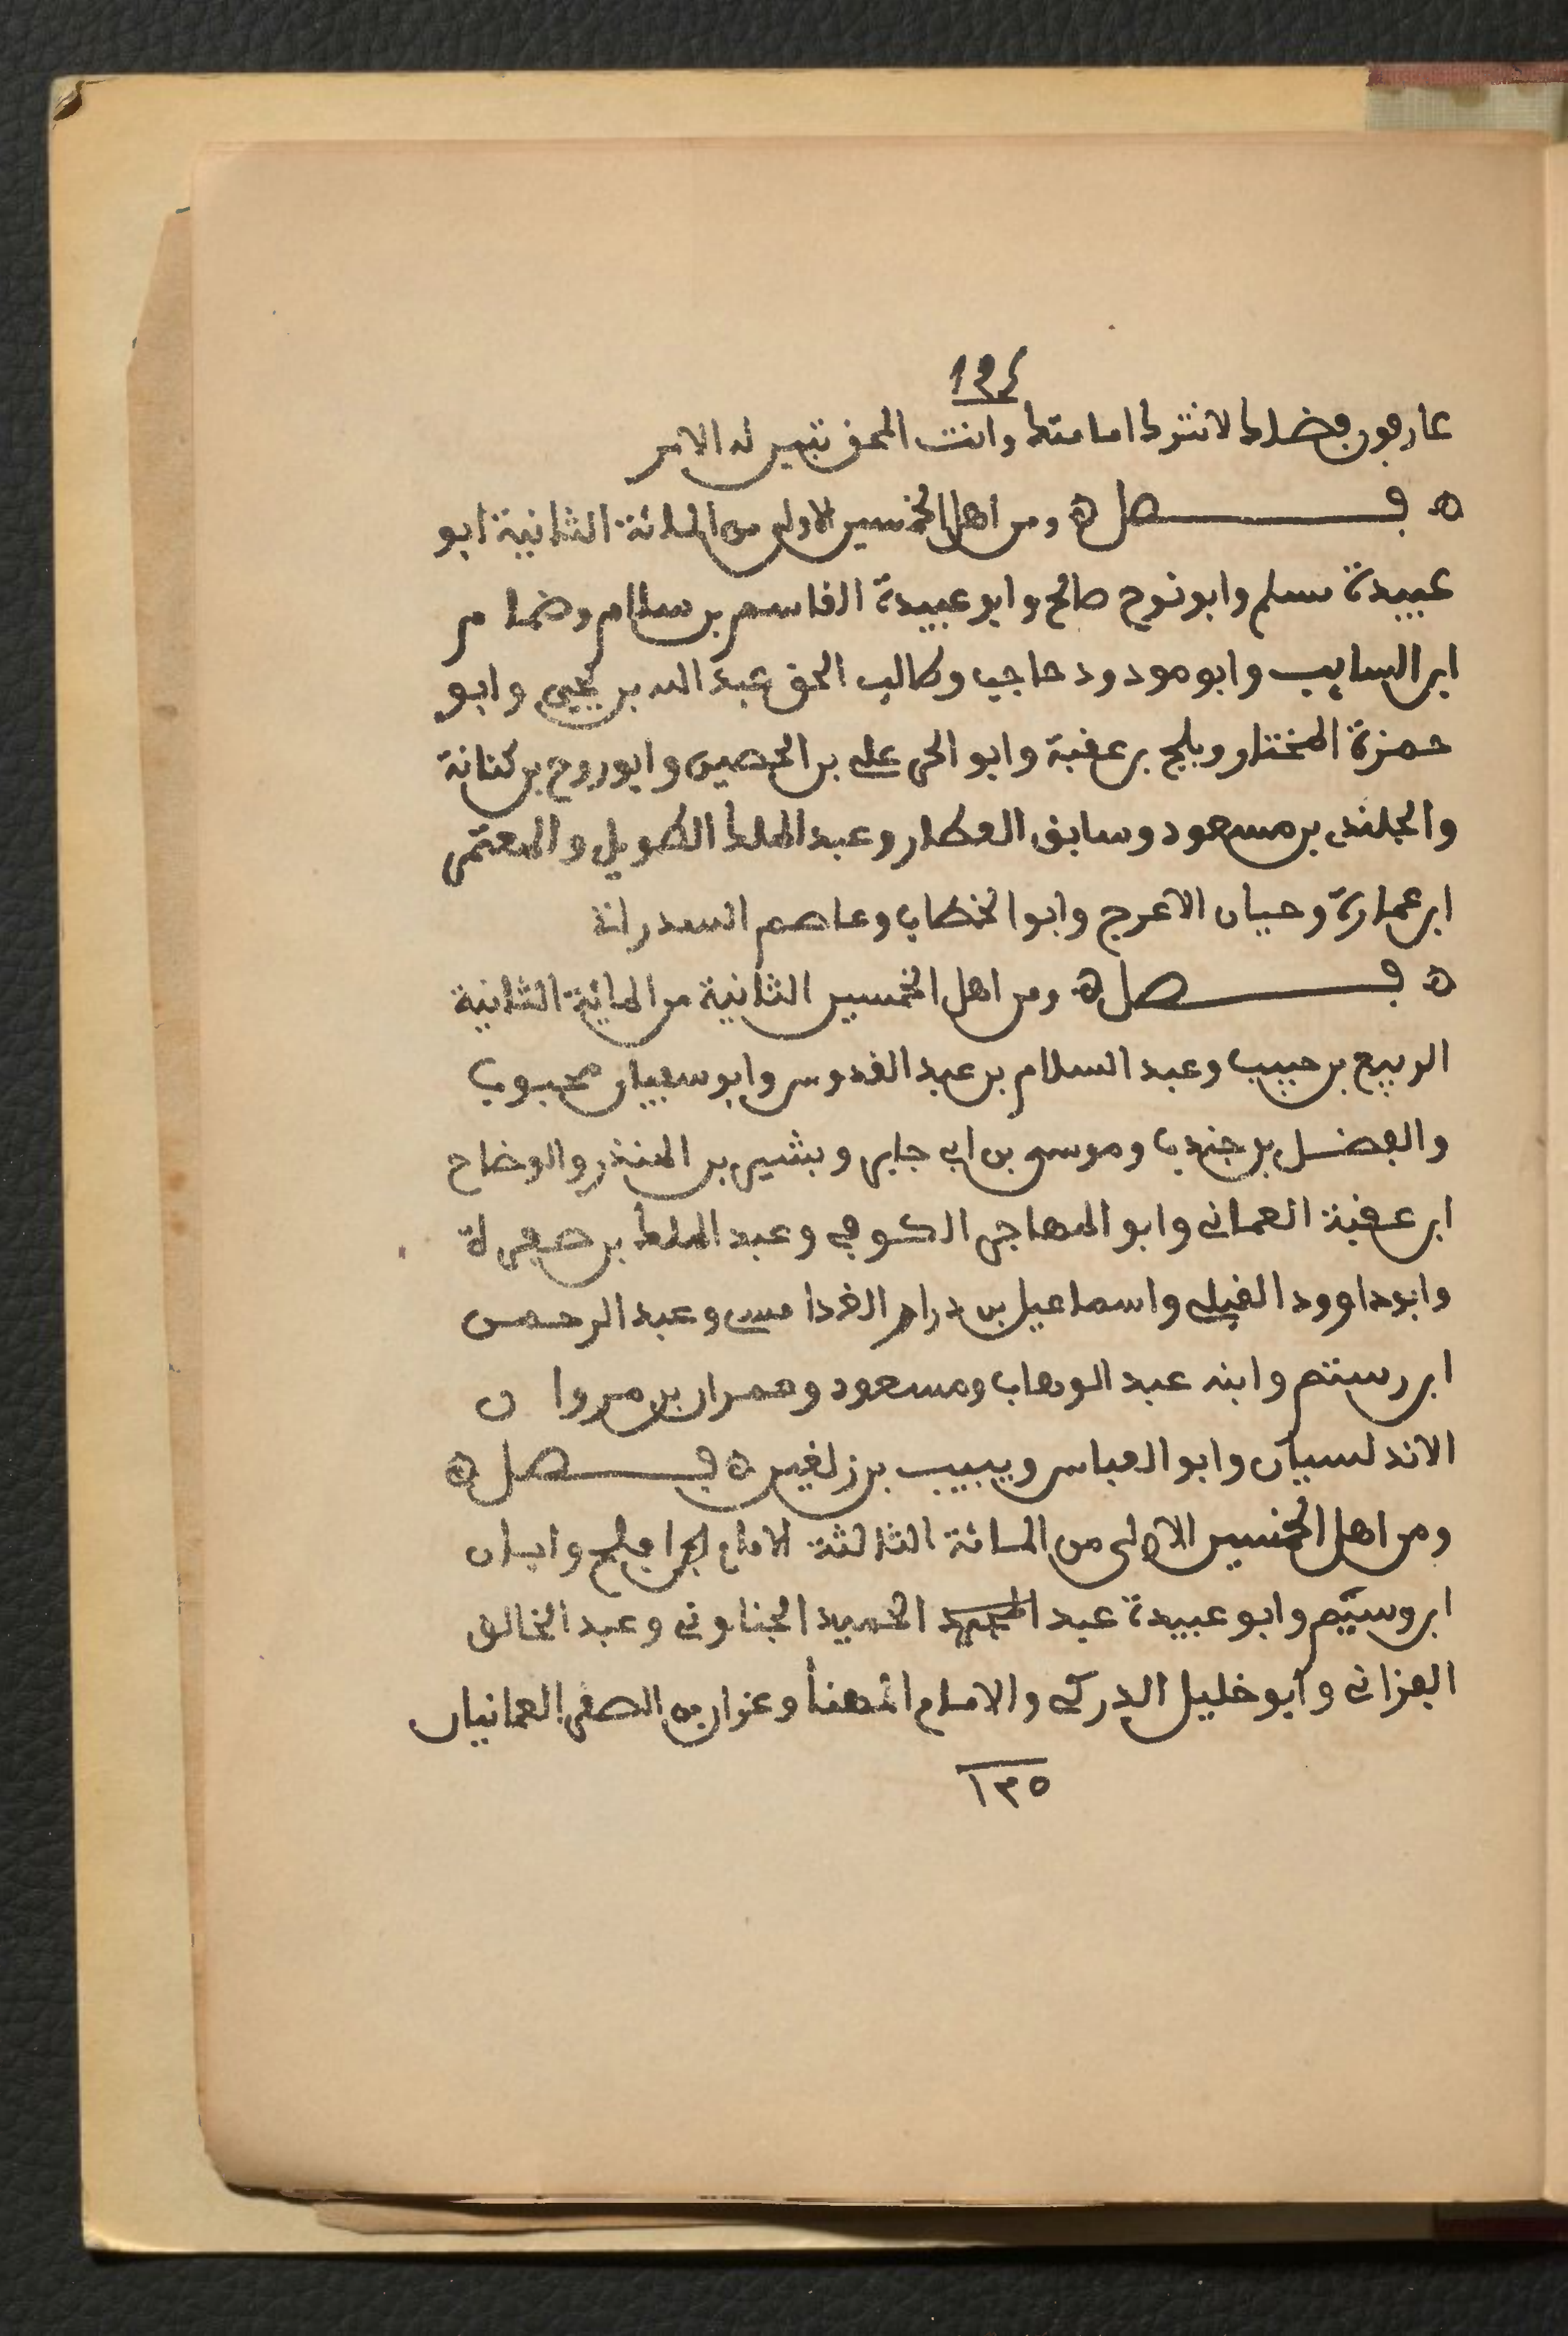 ١٣٤
عارفون بفضلك لانترك امامتك وانت المحق تبين له الامر
ه فـــــصل ه ومن اهل الخمسين الاولى من المائة الثانية ابو
عبيدة مسلم وابو نوح صالح وابو عبيدة القاسم بن سلام وضمام
ابن السايب وابو مودود حاجب وطالب الحق عبد الله بن يحيى وابو
حمزة المختار وبلج بن عقبة وابو الحر على بن الحصين وابو روح بن كنانة
والجلندى بن مسعود وسابق العطار وعبد الملك الطويل والمعتمر
ابن عمارة وحيان الاعرج وابو الخطاب وعاصم السدراتة
ه فـــــصل ه ومن اهل الخمسين الثانية من المائة الثانية
الربيع بن حبيب وعبد السلام بن عبد القدوس وابو سفيان محبوب
والفضل بن جندب وموسى بن ابى جابر وبشير بن المنذر والوضاح
ابن عقبة العمانى وابو المهاجر الكوفى وعبد الملك بن صفرة
وابو داوود القبلى واسماعيل بن درار الغدامسى وعبد الرحمن
ابن رستم وابنه عبد الوهاب ومسعود وعمران بن مروان
الاندلسيان وابو العباس ويبيب بن زلغين ه فـــــصل ه
ومن اهل الخمسين الاولى من المائة الثالثة الامام افلح وابان
ابن وسيم وابو عبيدة عبد الحميد الجناونى وعبد الخالق
الفزانى وابو خليل الدركى والامام المهنأ وعزان بن الصقر العمانيان
١٣٥